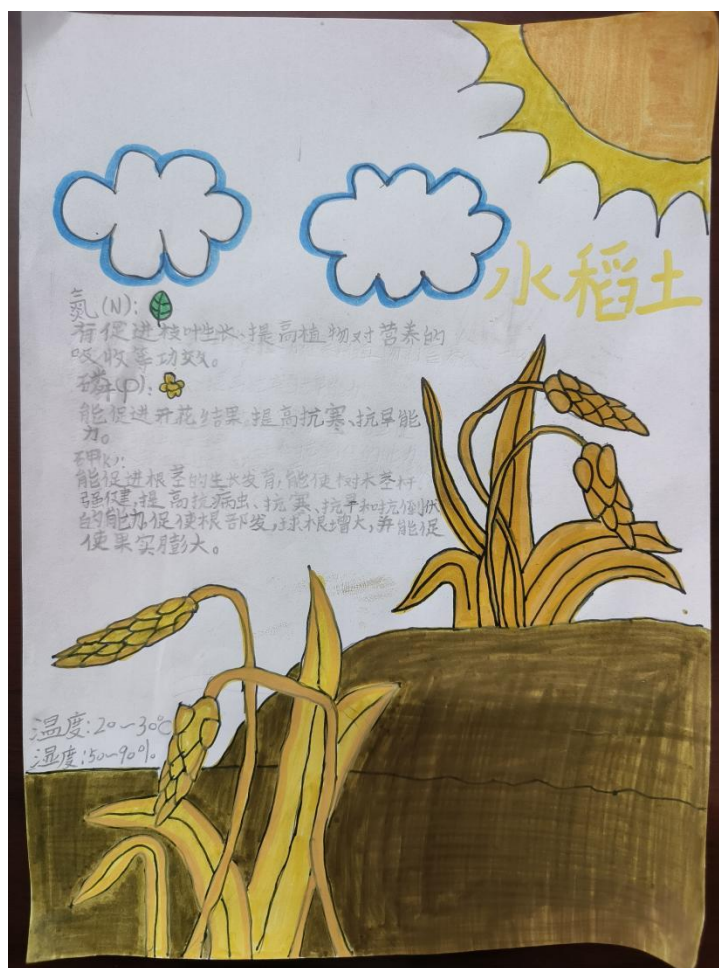 水稻土
氮(N):
有促进枝叶生长、提高植物对营养的
吸收等功效。
磷(p):
能促进开花结果,提高抗寒、抗旱能
力。
钾(k):
能促进根茎的生长发育,能使树木茎杆
强健,提高抗病虫、抗寒、抗旱和抗倒伏
的能力,促使根部发,球根增大,并能促
使果实膨大。
温度:20~30℃
湿度:50~90%